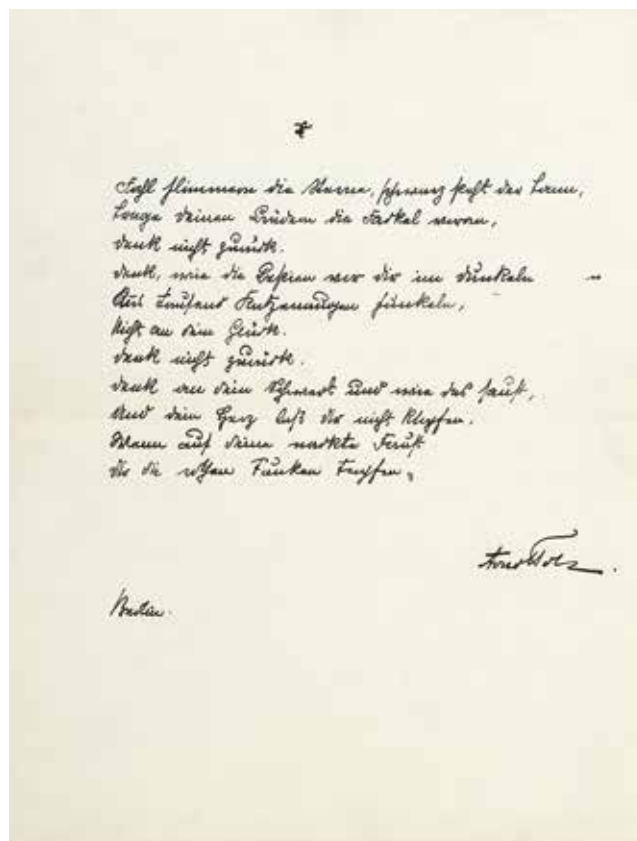 *
Fahl flimmern die Sterne, schwarz steht der Tann,
Trage deinen Brüdern die Fackel voran,
denk nicht zurück.
denk, wie die Bestien vor dir im Dunkeln
Aus tausend Katzenaugen funkeln,
Nicht an dein Glück.
denk nicht zurück.
denk an dein Schwert und wie das saust,
Und dein Herz laß dir nicht klopfen.
Wenn auf deine nackte Faust
dir die rothen Funken tropfen.
Arno Holz.
Berlin.